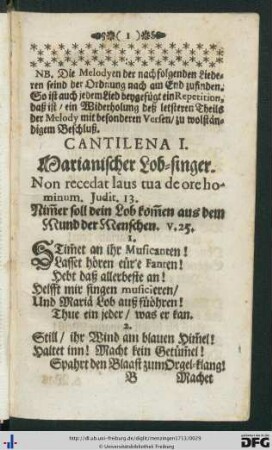 ( 1 )
NB. Die Melodyen der nachfolgenden Liede-
ren seind der Ordnung nach am End zufinden.
So ist auch jedem Lied beygefügt ein Repetition,
daß ist / ein Widerholung deß letsteren Theils
der Melody mit besonderen Versen / zu wolstän-
digem Beschluß.
CANTILENA I.
Marianischer Lob-singer.
Non recedat laus tua de ore ho-
minum. Judit. 13.
Nim̃er soll dein Lob kom̃en aus dem
Mund der Menschen. v. 25.
1.
Stim̃et an ihr Musicanten!
Lasset hören eür'e Fanten!
Hebt daß allerbeste an!
Helfft mir singen musicieren /
Und Mariä Lob auß führen!
Thue ein jeder / was er kan.
2.
Still / ihr Wind am blauen Him̃el!
Haltet inn! Macht kein Getüm̃el!
Spahrt den Blaast zum Orgel-klang!
B Machet
http://dl.ub.uni-freiburg.de/diglit/menzingen1711/0029
© Universitätsbibliothek Freiburg
gefördert durch die
DFG